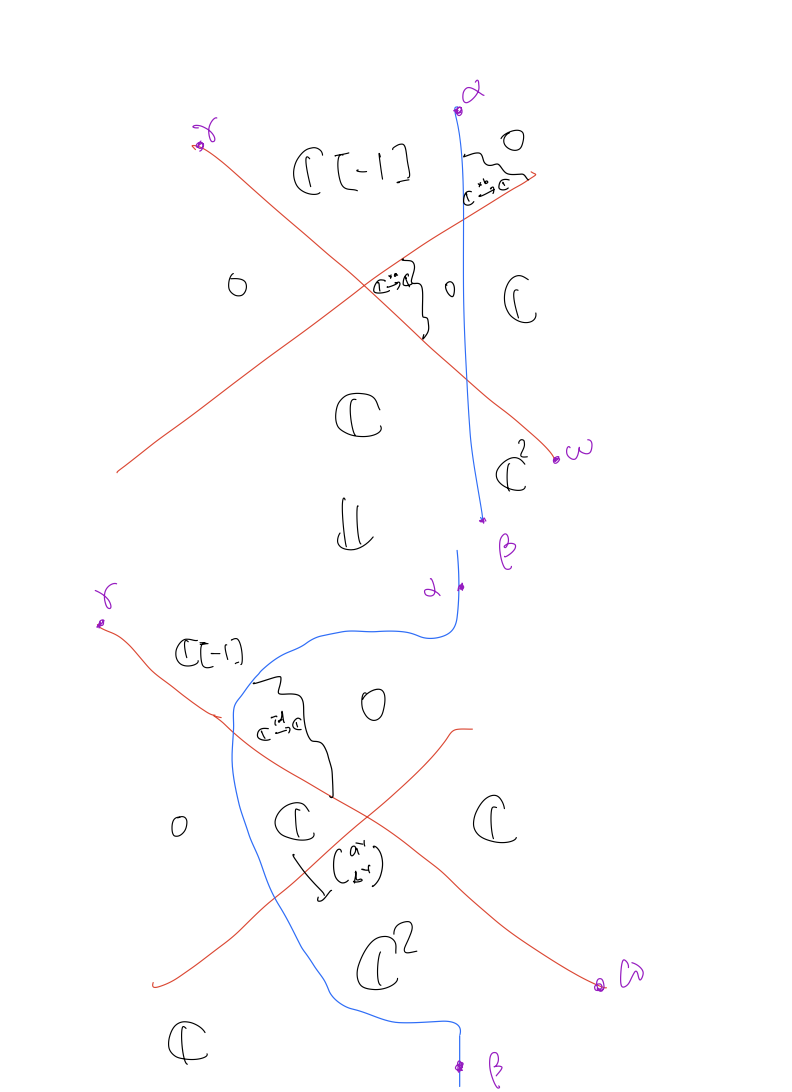 α
γ
ℂ[-1]
0
ℂ →^{×b} ℂ
0
ℂ →^{×a} ℂ
0
ℂ
ℂ
ω
ℂ²
⇓
β
α
γ
ℂ[-1]
0
ℂ →^{Id} ℂ
0
ℂ
ℂ
ℂ²
ω
ℂ
β